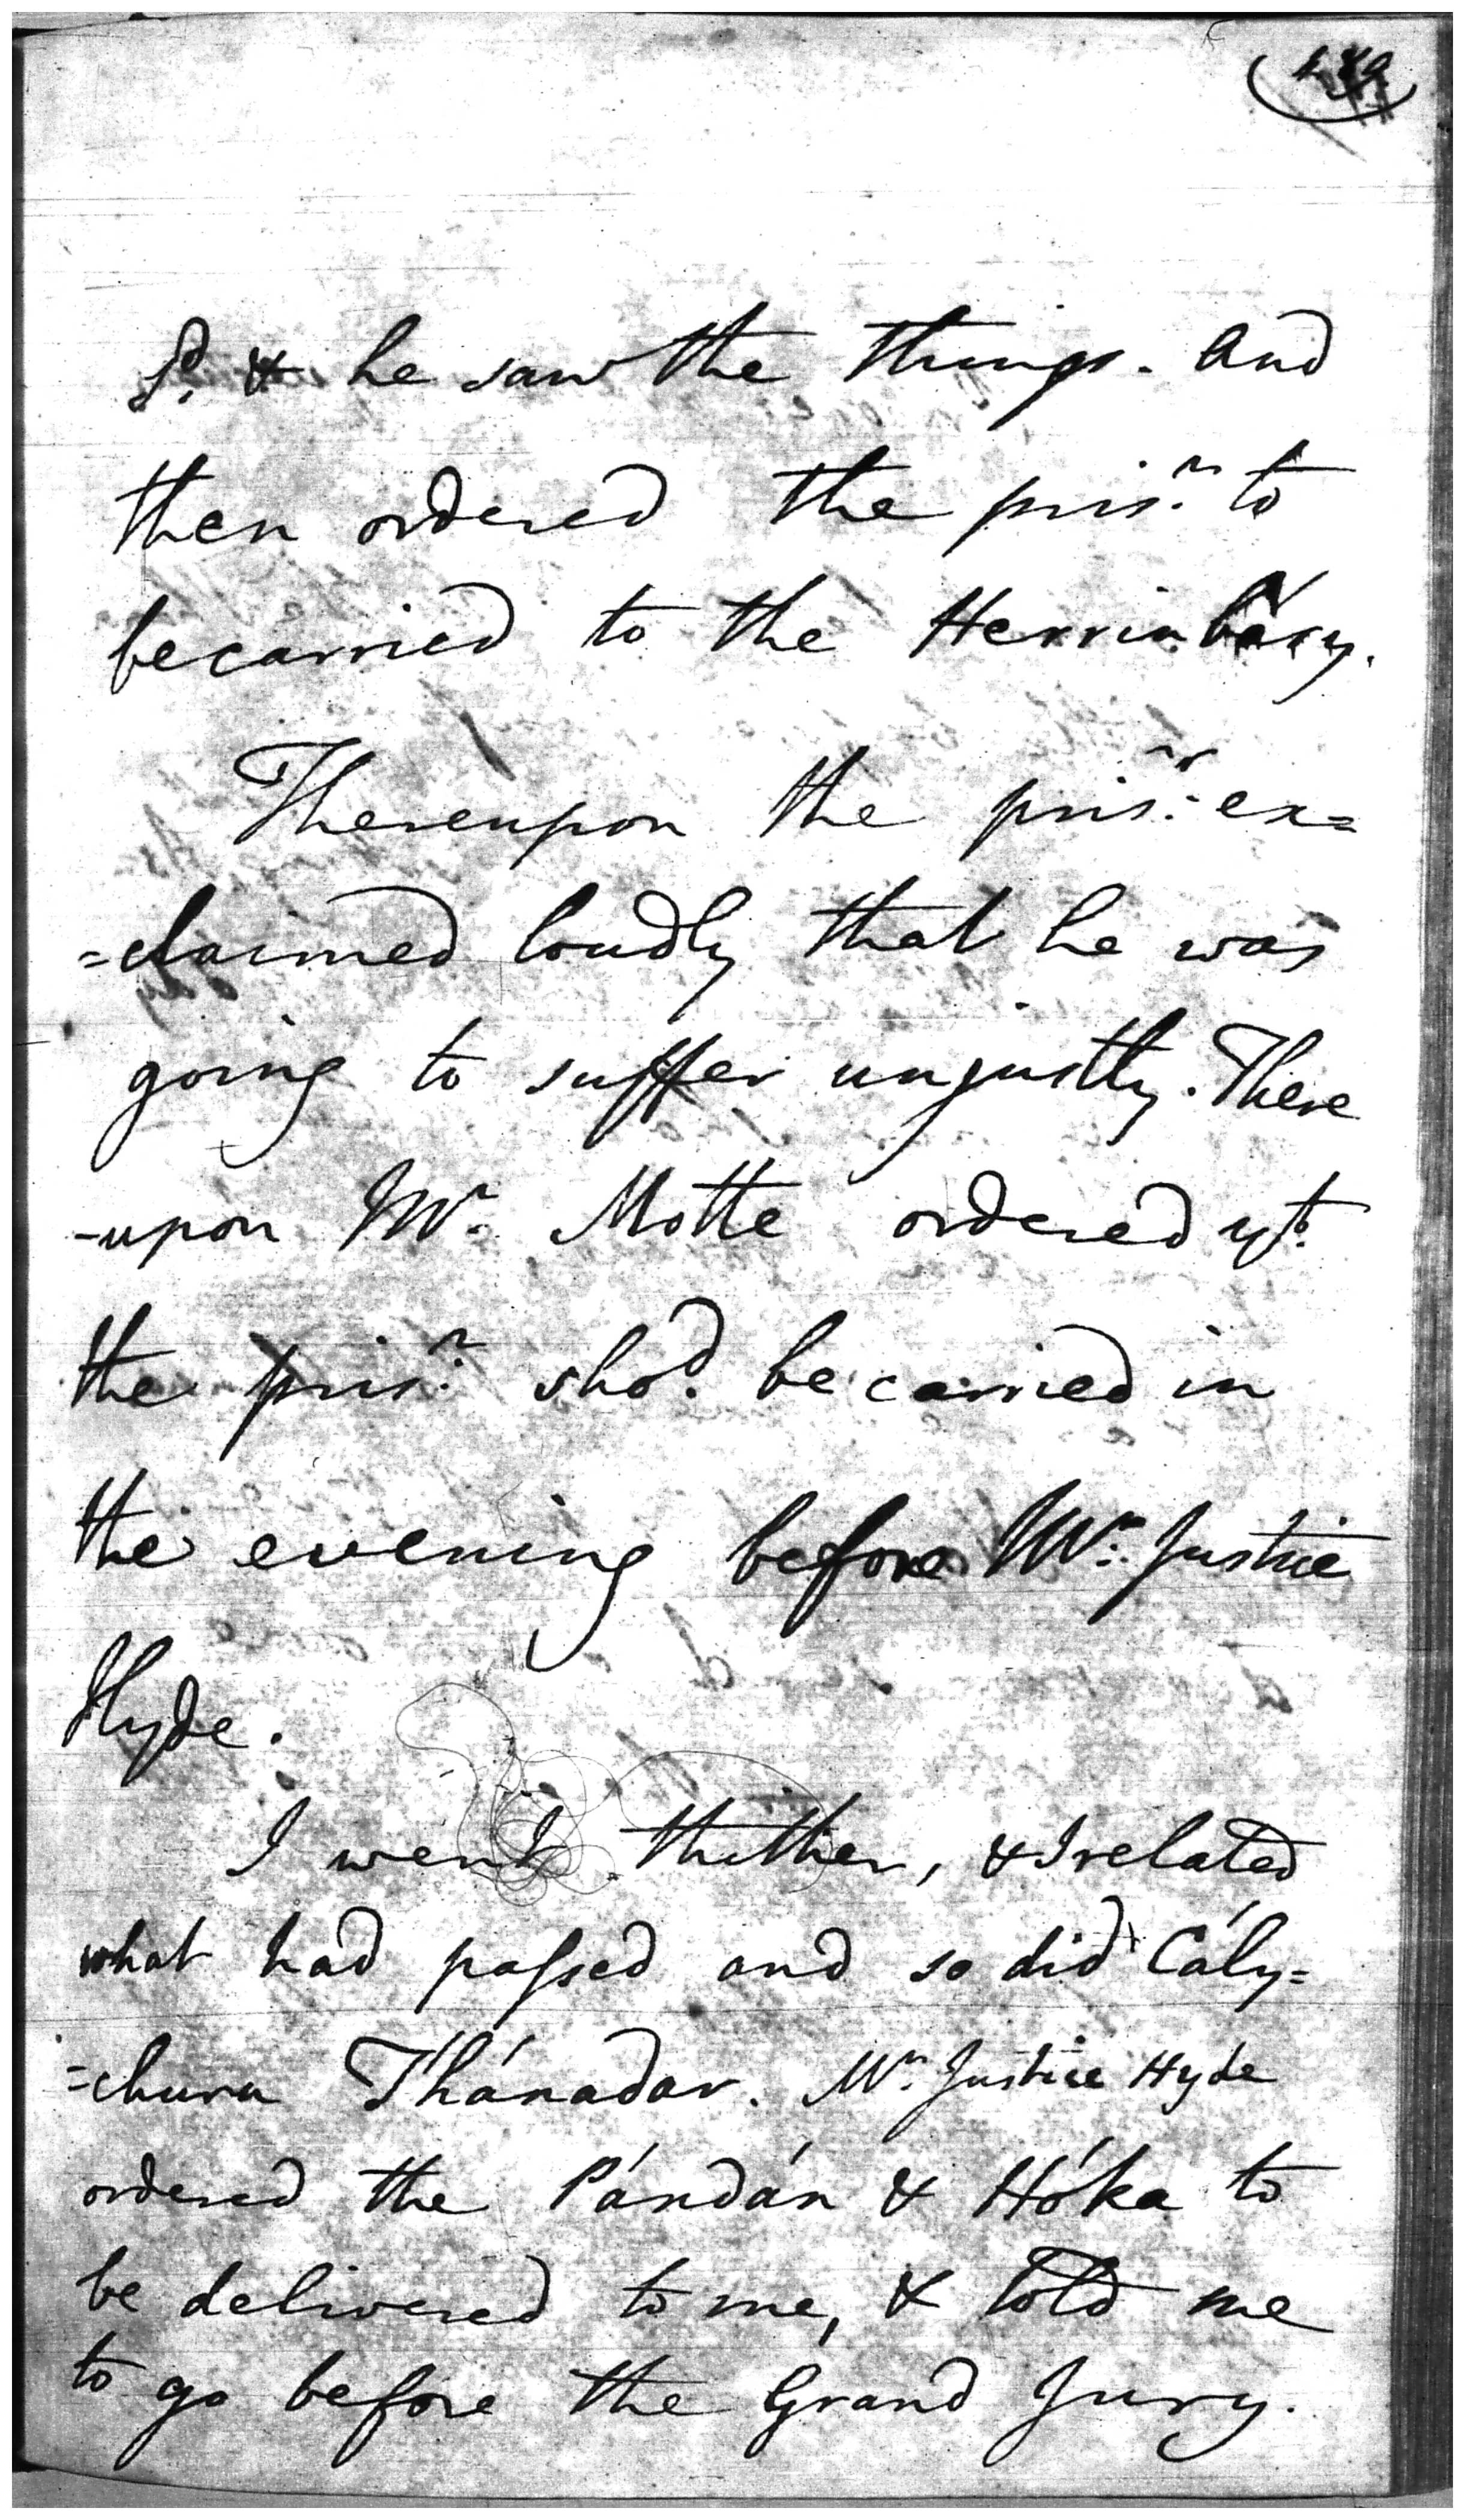 sd. & he saw the things. And
then ordered the prisr. to
be carried to the Herrinbáry.
Thereupon the prisr. ex=
=claimed loudly that he was
going to suffer unjustly. There
-upon Mr. Motte ordered yt.
the prisr. shod. be carried in
the evening before Mr. Justice
Hyde.
I went thither, & I related
what had passed and so did Cály=
=churn Thánadar. Mr. Justice Hyde
ordered the Pándán & Hóka to
be delivered to me, & told me
to go before the Grand Jury.